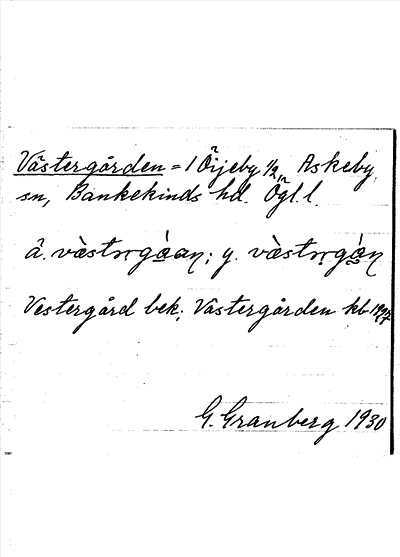 Västergården = 1 Öijeby 1/2 n Askeby
sn, Bankekinds hd. Ögl. l.
ä. västərgáan; y. västərgán
Vestergård bek; Västergården kb 1917
G. Granberg 1930